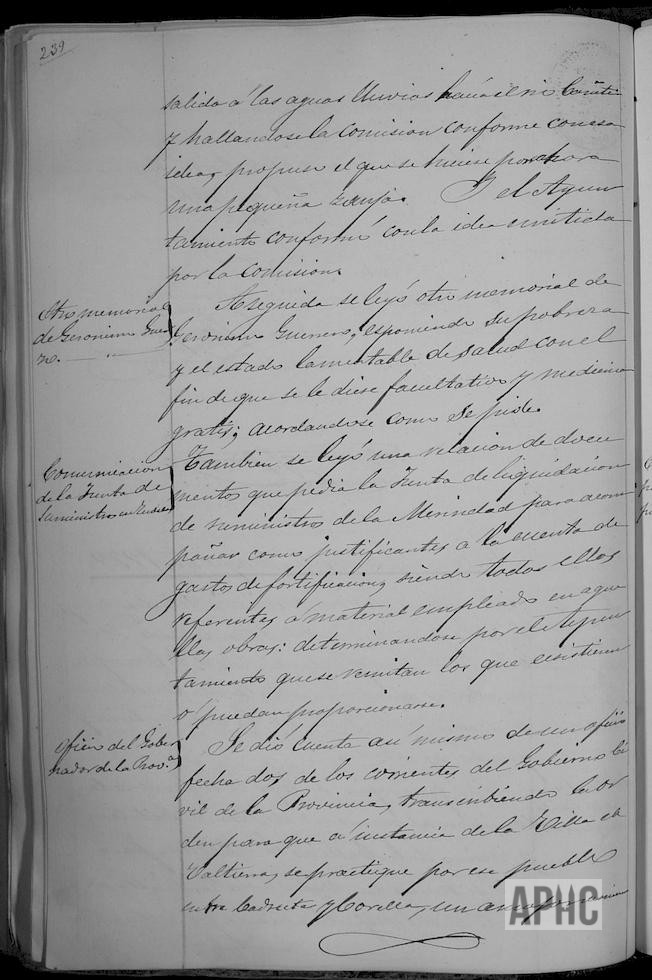 239
salida á las aguas lluvias hacia el rio
y hallandose la Comision conforme con esa
idea, propuso el que se hiciese por ahora
una pequeña zanja. Y el Ayun
tamiento conformó con la idea emitida
por la Comision.
Otro memorial
de Geronimo Gue
ro.
Aseguida se leyó otro memorial de
Geronimo Guerrero, esponiendo su pobreza
y el estado lamentable de salud con el
fin de que se le diese facultativo y medicina
gratis; acordandose como se pide.
Comunicacion
de la Junta de
Suministros en Tudela
Tambien se leyó una relacion de docu
mentos que pedia la Junta de liquidacion
de suministros de la Merindad para acom
pañar como justificantes á la cuenta de
gastos de fortificacion, siendo todos ellos
referentes á material empleado en aque
llas obras: determinandose por el Ayun
tamiento que se remitan los que existieren
ó puedan proporcionarse.
Oficio del Gober
nador de la Prov.ª
Se dió cuenta asi mismo de un oficio
fecha dos de los corrientes del Gobierno Ci
vil de la Provincia, transcribiendo la or
den para que á instancia de la Villa de
Valtierra, se practique por ese pueblo
entre Cadreita y Corella, un
APHC